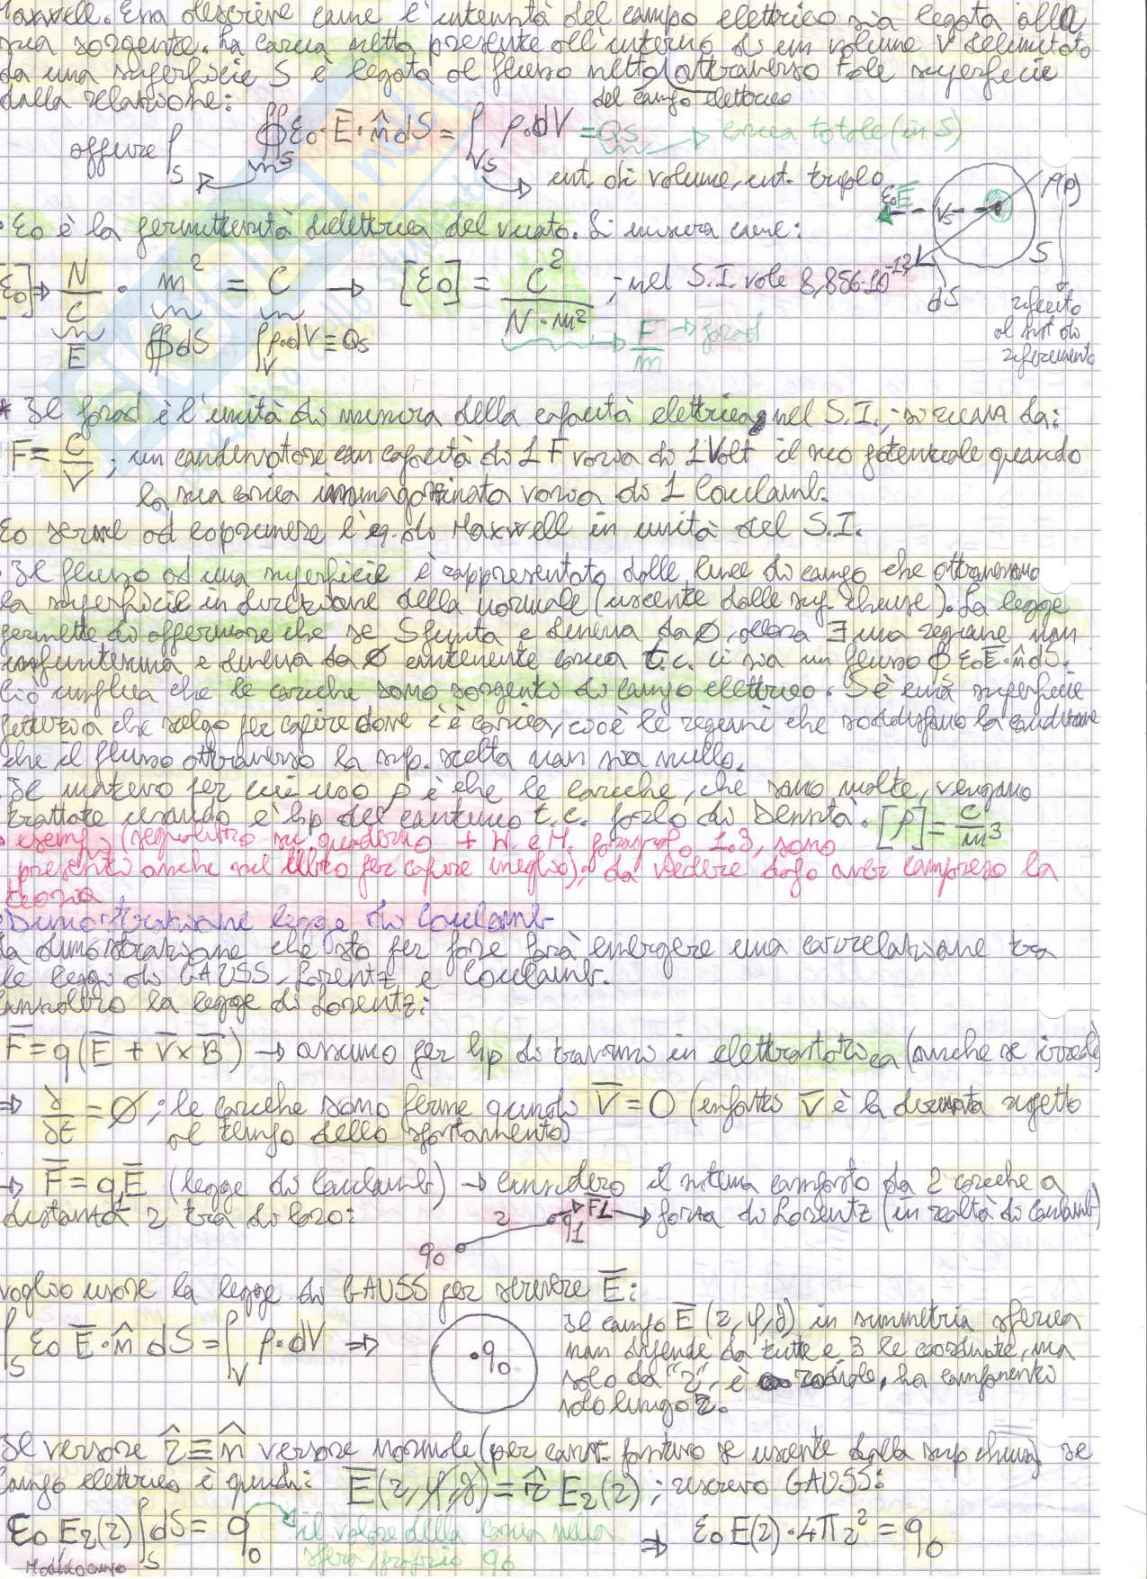 Maxwell. Essa descrive come l'intensità del campo elettrico sia legata alla
sua sorgente. La carica netta presente all'interno di un volume V delimitato
da una superficie S è legata al flusso netto attraverso tale superficie
del campo elettrico
dalla relazione:
oppure ∫S ∯S ε0·E̅·n̂dS = ∫VS ρ·dV = QS → carica totale (in S)
int. di volume, int. triplo
ε0E̅ VS ρ(P) S dS
riferito al sist di riferimento
ε0 è la permittività dielettrica del vuoto. Si misura come:
[ε0] ⇒ N/C · m² = C → [ε0] = C²/N·m² ; nel S.I. vale 8,856·10⁻¹²
E ∯dS ∫V ρ·dV = QS F/m → farad
* Il farad è l'unità di misura della capacità elettrica, nel S.I.; si ricava da:
F = C/V ; un condensatore con capacità di 1 F varia di 1 Volt il suo potenziale quando
la sua carica immagazzinata varia di 1 Coulomb.
ε0 serve ad esprimere l'eq. di Maxwell in unità del S.I.
Il flusso ad una superficie è rappresentato dalle linee di campo che attraversano
la superficie in direzione della normale (uscente dalle sup. chiuse). La legge
permette di affermare che se S finita e diversa da Ø, allora ∃ una regione non
infinitesima e diversa da Ø contenente carica t.c. ci sia un flusso ∯ε0E̅·n̂dS.
Ciò implica che le cariche sono sorgenti di campo elettrico. S è una superficie
fittizia che scelgo per capire dove c'è carica, cioè le regioni che soddisfano la condizione
che il flusso attraverso la sup. scelta non sia nullo.
Il motivo per cui uso ρ è che le cariche, che sono molte, vengono
trattate usando l'hp del continuo t.c. parlo di densità. [ρ] = C/m³
esempi (seguibili su quaderno + W e H, paragrafo 1.3, sono
presenti anche sul libro per capire meglio); da vedere dopo aver compreso la
teoria
Dimostrazione legge di Coulomb
La dimostrazione che sto per fare farà emergere una correlazione tra
le leggi di GAUSS, Lorentz e Coulomb.
Considero la legge di Lorentz:
F̅ = q(E̅ + v̅×B̅) → assumo per hp di trovarmi in elettrostatica (anche se irreale)
⇒ ∂/∂t = Ø; le cariche sono ferme quindi v̅ = 0 (infatti v̅ è la derivata rispetto
al tempo dello spostamento)
→ F̅ = q1E̅ (legge di Coulomb) → considero il sistema composto da 2 cariche a
distanza r tra di loro:
q0 r q1 F̅L → forza di Lorentz (in realtà di Coulomb)
Voglio usare la legge di GAUSS per scrivere E̅:
∫S ε0 E̅·n̂ dS = ∫V ρ·dV ⇒ ·q0
Il campo E̅(r,φ,θ) in simmetria sferica
non dipende da tutte e 3 le coordinate, ma
solo da "r", è radiale, ha componenti
solo lungo r.
Il versore r̂ ≡ n̂ versore normale (per conv. positivo se uscente dalla sup chiusa) se
campo elettrico è quindi: E̅(r,φ,θ) = r̂ Er(r); riscrivo GAUSS:
ε0 Er(r) ∫S dS = q0 il valore della carica nella ⇒ ε0E(r)·4πr² = q0
sfera proprio q0